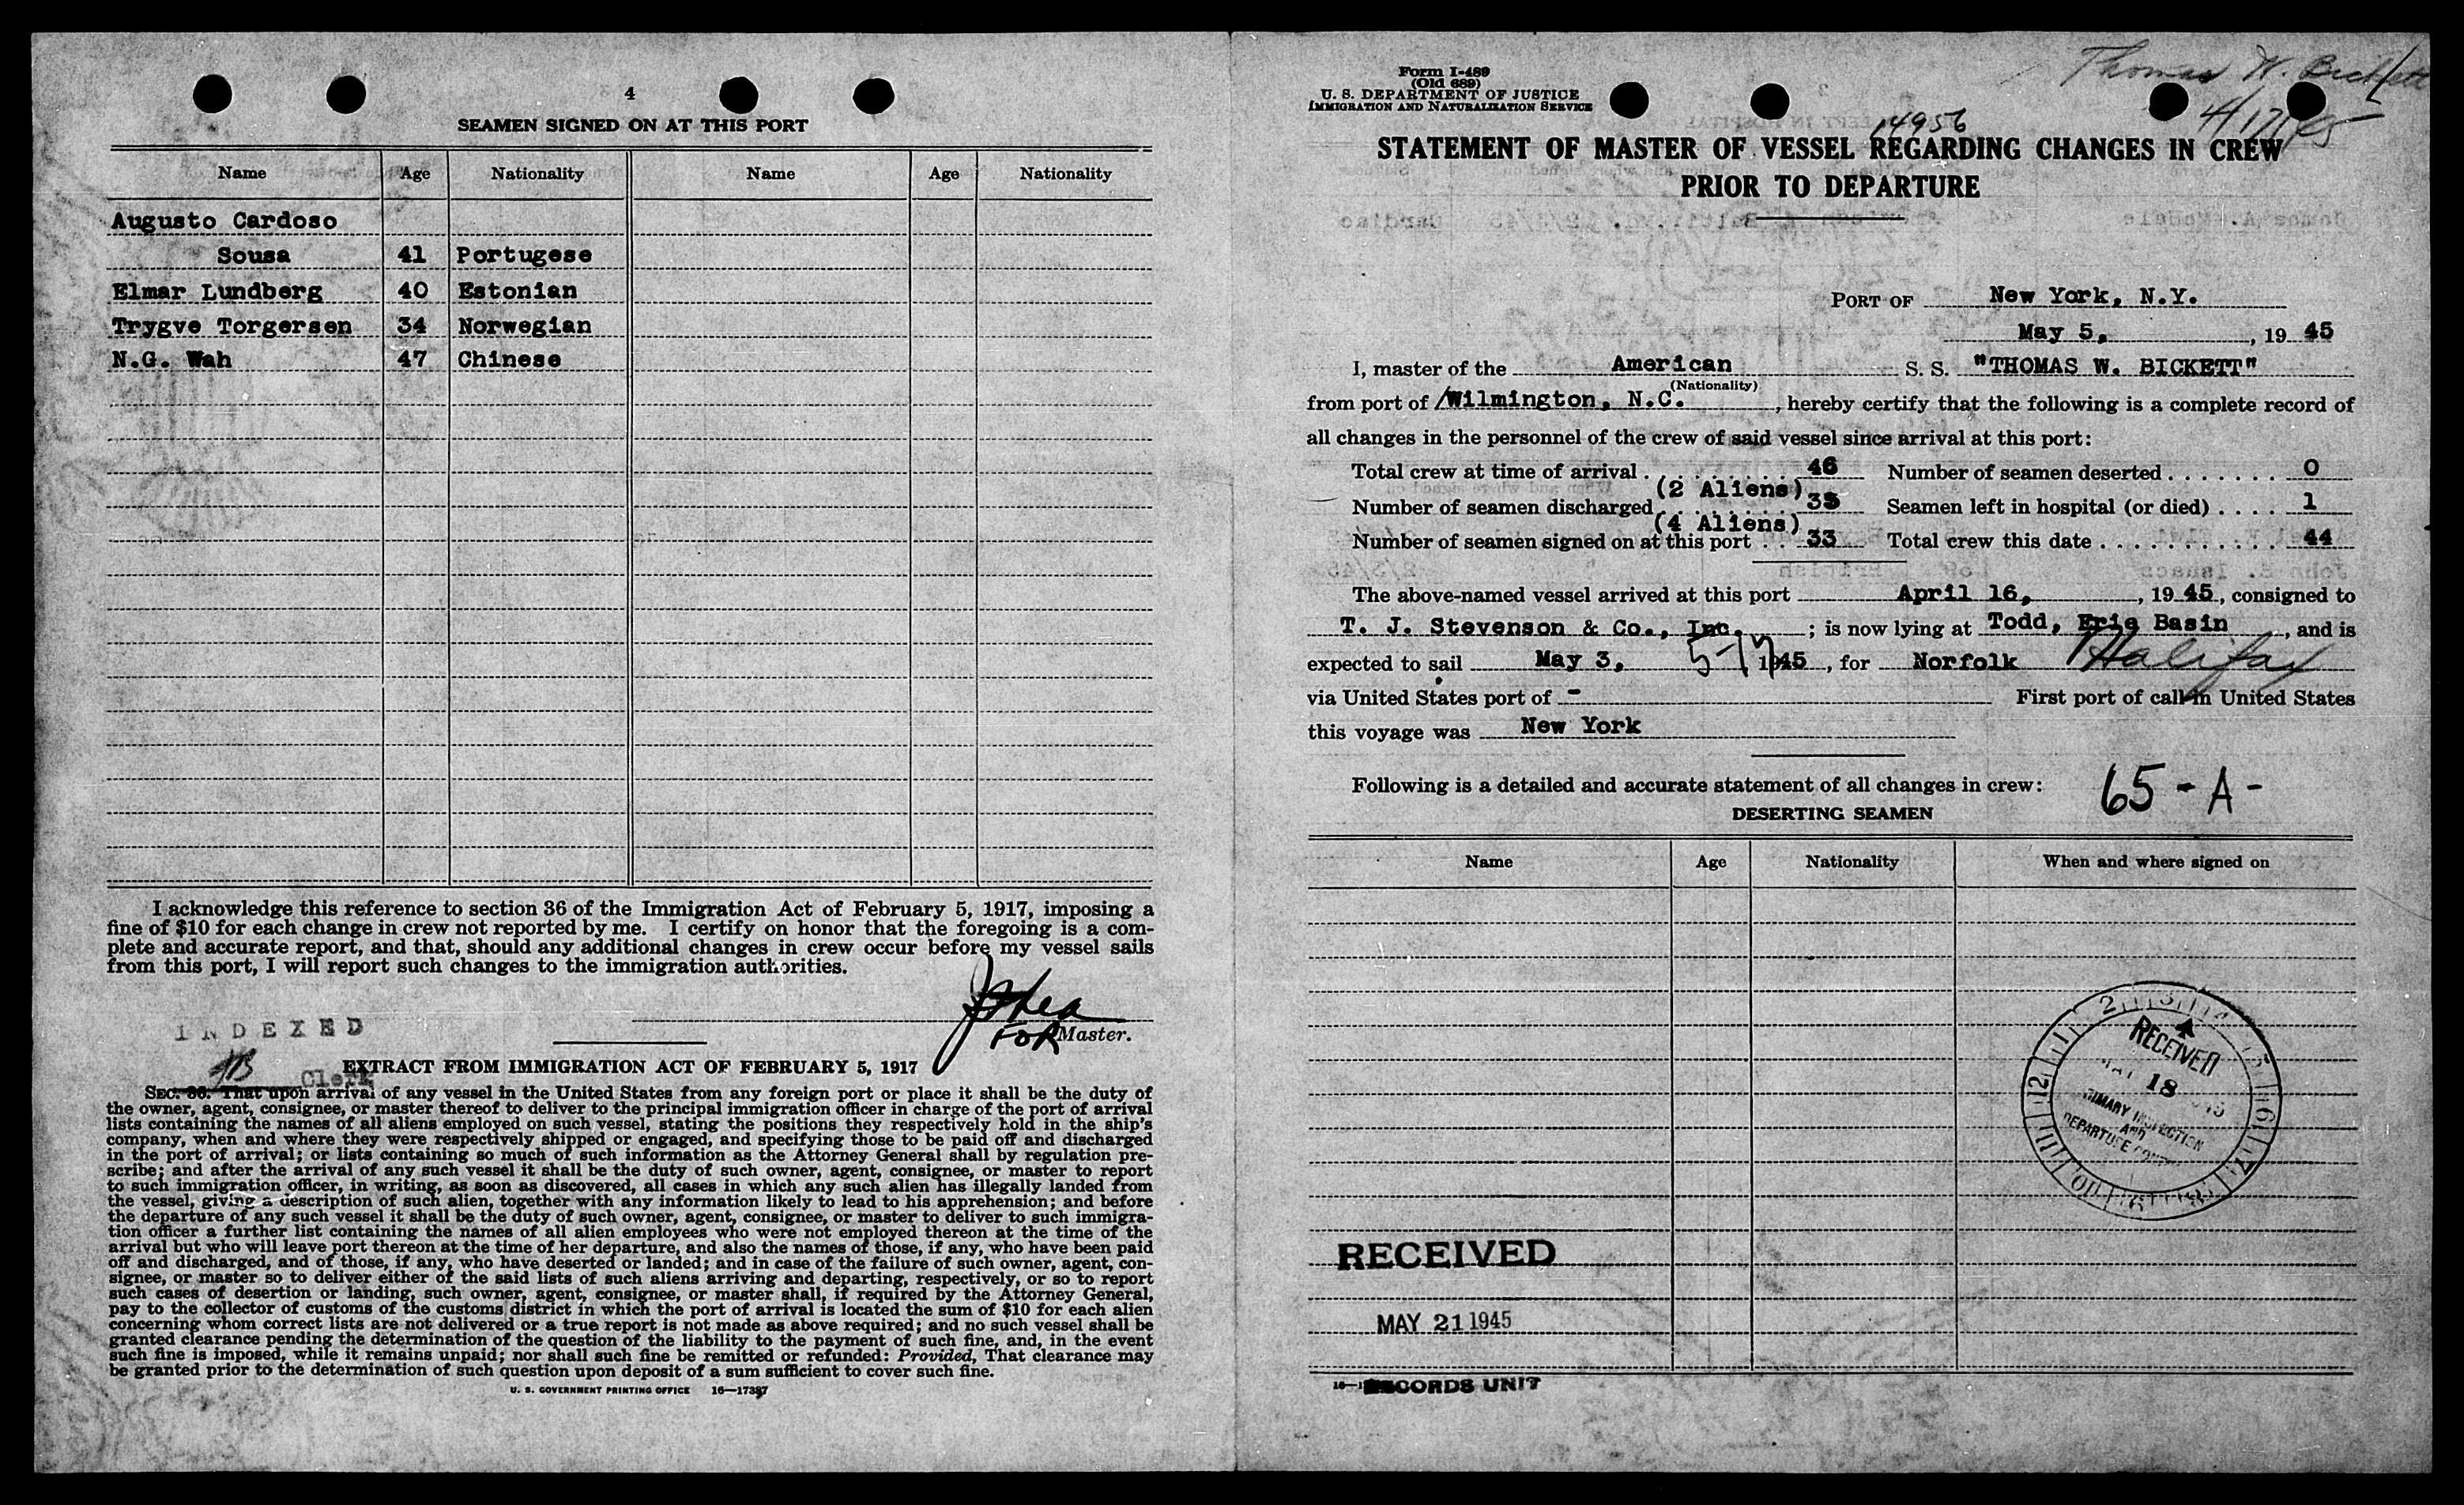 4
SEAMEN SIGNED ON AT THIS PORT
Name Age Nationality Name Age Nationality
Augusto Cardoso
Sousa 41 Portugese
Elmar Lundberg 40 Estonian
Trygve Torgersen 34 Norwegian
N.G. Wah 47 Chinese
I acknowledge this reference to section 36 of the Immigration Act of February 5, 1917, imposing a
fine of $10 for each change in crew not reported by me. I certify on honor that the foregoing is a com-
plete and accurate report, and that, should any additional changes in crew occur before my vessel sails
from this port, I will report such changes to the immigration authorities.
FOR Master.
INDEXED
Clerk
EXTRACT FROM IMMIGRATION ACT OF FEBRUARY 5, 1917
SEC. 36. That upon arrival of any vessel in the United States from any foreign port or place it shall be the duty of
the owner, agent, consignee, or master thereof to deliver to the principal immigration officer in charge of the port of arrival
lists containing the names of all aliens employed on such vessel, stating the positions they respectively hold in the ship's
company, when and where they were respectively shipped or engaged, and specifying those to be paid off and discharged
in the port of arrival; or lists containing so much of such information as the Attorney General shall by regulation pre-
scribe; and after the arrival of any such vessel it shall be the duty of such owner, agent, consignee, or master to report
to such immigration officer, in writing, as soon as discovered, all cases in which any such alien has illegally landed from
the vessel, giving a description of such alien, together with any information likely to lead to his apprehension; and before
the departure of any such vessel it shall be the duty of such owner, agent, consignee, or master to deliver to such immigra-
tion officer a further list containing the names of all alien employees who were not employed thereon at the time of the
arrival but who will leave port thereon at the time of her departure, and also the names of those, if any, who have been paid
off and discharged, and of those, if any, who have deserted or landed; and in case of the failure of such owner, agent, con-
signee, or master so to deliver either of the said lists of such aliens arriving and departing, respectively, or so to report
such cases of desertion or landing, such owner, agent, consignee, or master shall, if required by the Attorney General,
pay to the collector of customs of the customs district in which the port of arrival is located the sum of $10 for each alien
concerning whom correct lists are not delivered or a true report is not made as above required; and no such vessel shall be
granted clearance pending the determination of the question of the liability to the payment of such fine, and, in the event
such fine is imposed, while it remains unpaid; nor shall such fine be remitted or refunded: Provided, That clearance may
be granted prior to the determination of such question upon deposit of a sum sufficient to cover such fine.
U. S. GOVERNMENT PRINTING OFFICE 16—17387
Form I-489
(Old 689)
U. S. DEPARTMENT OF JUSTICE
IMMIGRATION AND NATURALIZATION SERVICE
Thomas W. Bickett
4/17/45
14956
STATEMENT OF MASTER OF VESSEL REGARDING CHANGES IN CREW
PRIOR TO DEPARTURE
PORT OF New York, N.Y.
May 5, , 19 45
I, master of the American S. S. "THOMAS W. BICKETT"
(Nationality)
from port of Wilmington, N.C. , hereby certify that the following is a complete record of
all changes in the personnel of the crew of said vessel since arrival at this port:
Total crew at time of arrival . . . . . . . . 46 Number of seamen deserted . . . . . . . . 0
(2 Aliens)
Number of seamen discharged . . . . . . . Seamen left in hospital (or died) . . . . 1
(4 Aliens)
Number of seamen signed on at this port . . 33 Total crew this date . . . . . . . . . . . . 44
The above-named vessel arrived at this port April 16, , 19 45, consigned to
T. J. Stevenson & Co., Inc. ; is now lying at Todd, Erie Basin , and is
expected to sail May 3, 5-17 1945 , for Norfolk Halifax
via United States port of - First port of call in United States
this voyage was New York
Following is a detailed and accurate statement of all changes in crew: 65-A-
DESERTING SEAMEN
Name Age Nationality When and where signed on
RECEIVED
MAY 18
PRIMARY INSPECTION
AND
DEPARTURE
RECEIVED
MAY 21 1945
RECORDS UNIT